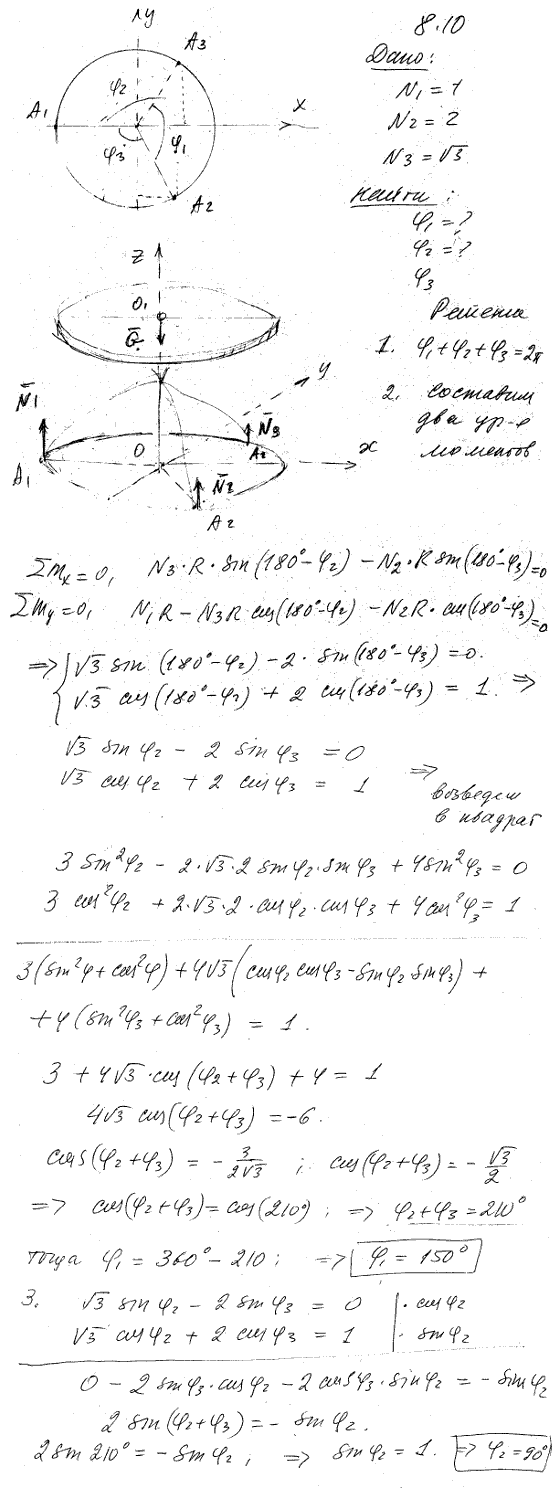 y
A3
φ2
x
A1
φ3
φ1
A2
8.10
Дано:
N1 = 1
N2 = 2
N3 = √3
Найти:
φ1 = ?
φ2 = ?
φ3
Решение
1. φ1 + φ2 + φ3 = 2π
2. составим
два ур-е
моментов
z
O1
G
y
N1
N3
O
x
A1
N2
A2
Σmx = 0, N3·R·sin(180°-φ2) - N2·R sin(180°-φ3) = 0
Σmy = 0, N1R - N3R cos(180°-φ2) - N2R·cos(180°-φ3) = 0
=> { √3 sin(180°-φ2) - 2·sin(180°-φ3) = 0.
√3 cos(180°-φ2) + 2 cos(180°-φ3) = 1. =>
√3 sin φ2 - 2 sin φ3 = 0
√3 cos φ2 + 2 cos φ3 = 1 =>
возведем
в квадрат
3 sin²φ2 - 2·√3·2 sin φ2·sin φ3 + 4 sin²φ3 = 0
3 cos²φ2 + 2·√3·2·cos φ2·cos φ3 + 4 cos²φ3 = 1
3(sin²φ + cos²φ) + 4√3(cos φ2 cos φ3 - sin φ2 sin φ3) +
+ 4(sin²φ3 + cos²φ3) = 1.
3 + 4√3·cos(φ2+φ3) + 4 = 1
4√3 cos(φ2+φ3) = -6.
cos(φ2+φ3) = -3/2√3 ; cos(φ2+φ3) = -√3/2
=> cos(φ2+φ3) = cos(210°); => φ2+φ3 = 210°
тогда φ1 = 360° - 210; => φ1 = 150°
3. √3 sin φ2 - 2 sin φ3 = 0 | · cos φ2
√3 cos φ2 + 2 cos φ3 = 1 | · sin φ2
0 - 2 sin φ3·cos φ2 - 2 cos φ3·sin φ2 = - sin φ2
2 sin(φ2+φ3) = - sin φ2.
2 sin 210° = - sin φ2, => sin φ2 = 1. => φ2 = 90°